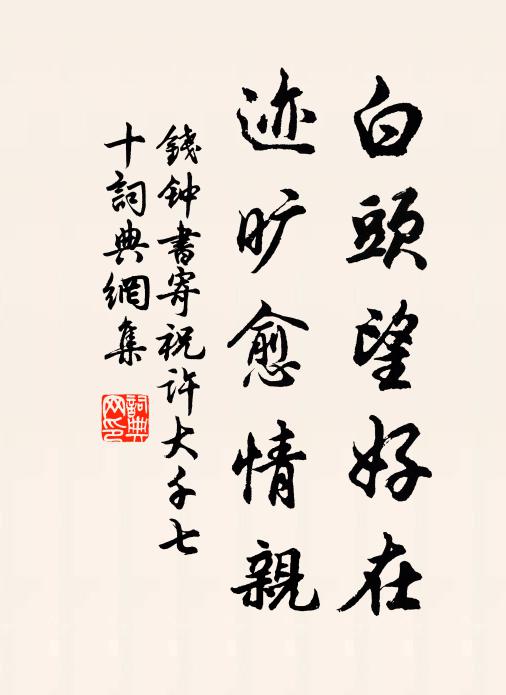 白頭望好在
迹旷愈情親
錢钟書寄祝许大千七
十詞典網集
詞典
网印